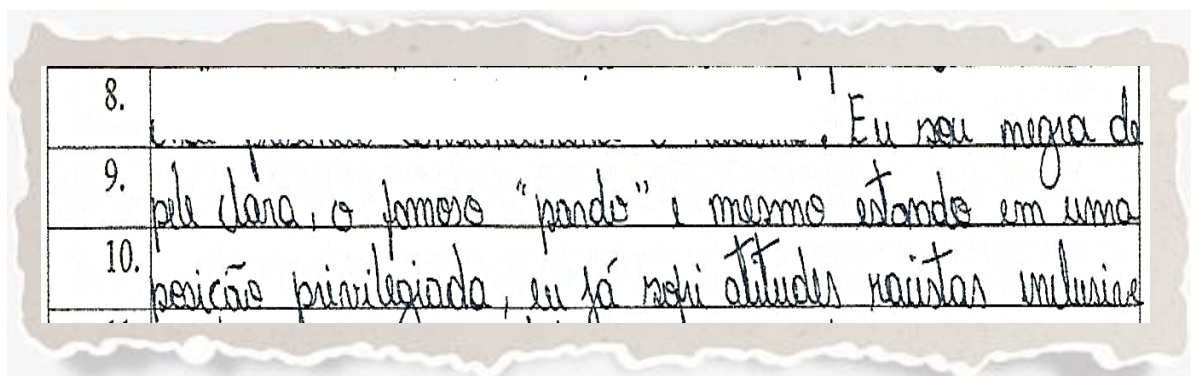 8. . Eu sou negra de
9. pele clara, o famoso "pardo" e mesmo estando em uma
10. posição privilegiada, eu já sofri atitudes racistas inclusive